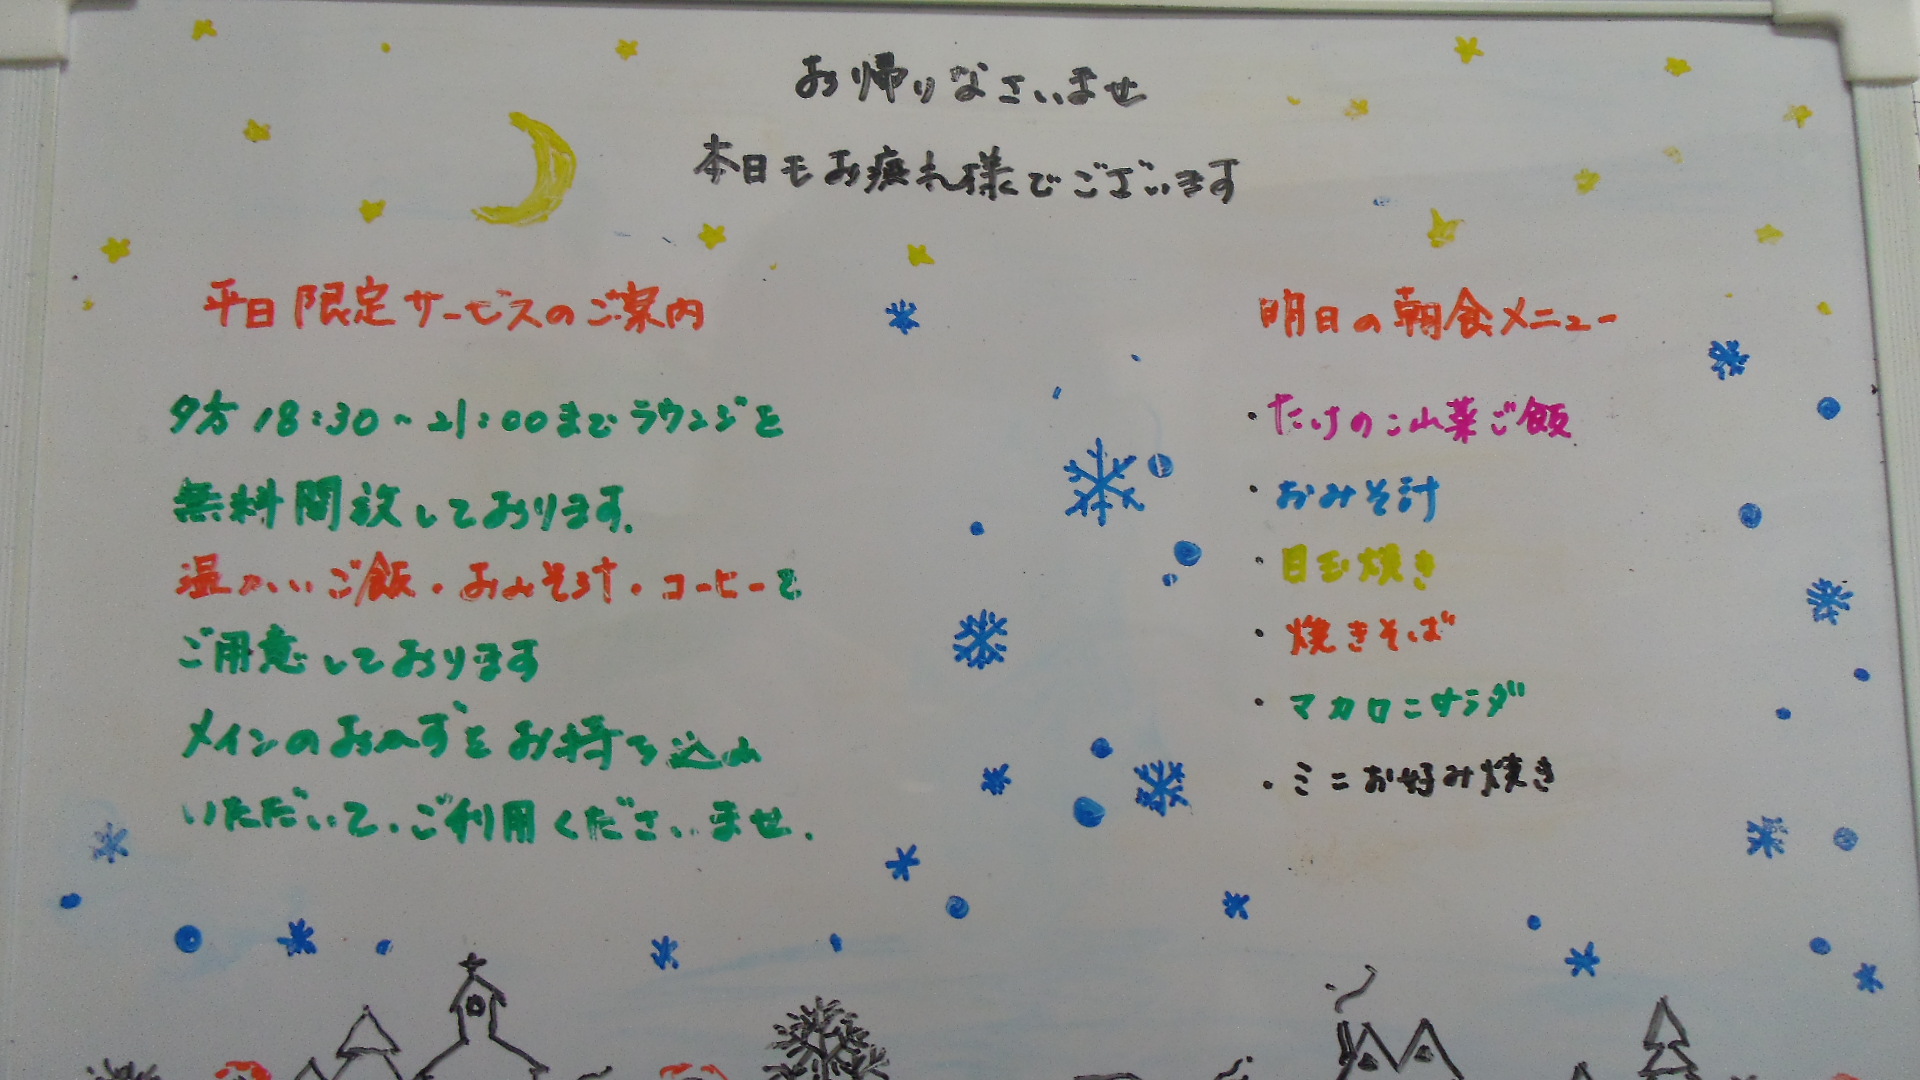 お帰りなさいませ
本日もお疲れ様でございます
平日限定サービスのご案内
夕方18:30~21:00までラウンジを
無料開放しております。
温かいご飯・おみそ汁・コーヒーを
ご用意しております
メインのおかずをお持ち込み
いただいて、ご利用くださいませ。
明日の朝食メニュー
・たけのこ山菜ご飯
・おみそ汁
・目玉焼き
・焼きそば
・マカロニサラダ
・ミニお好み焼き